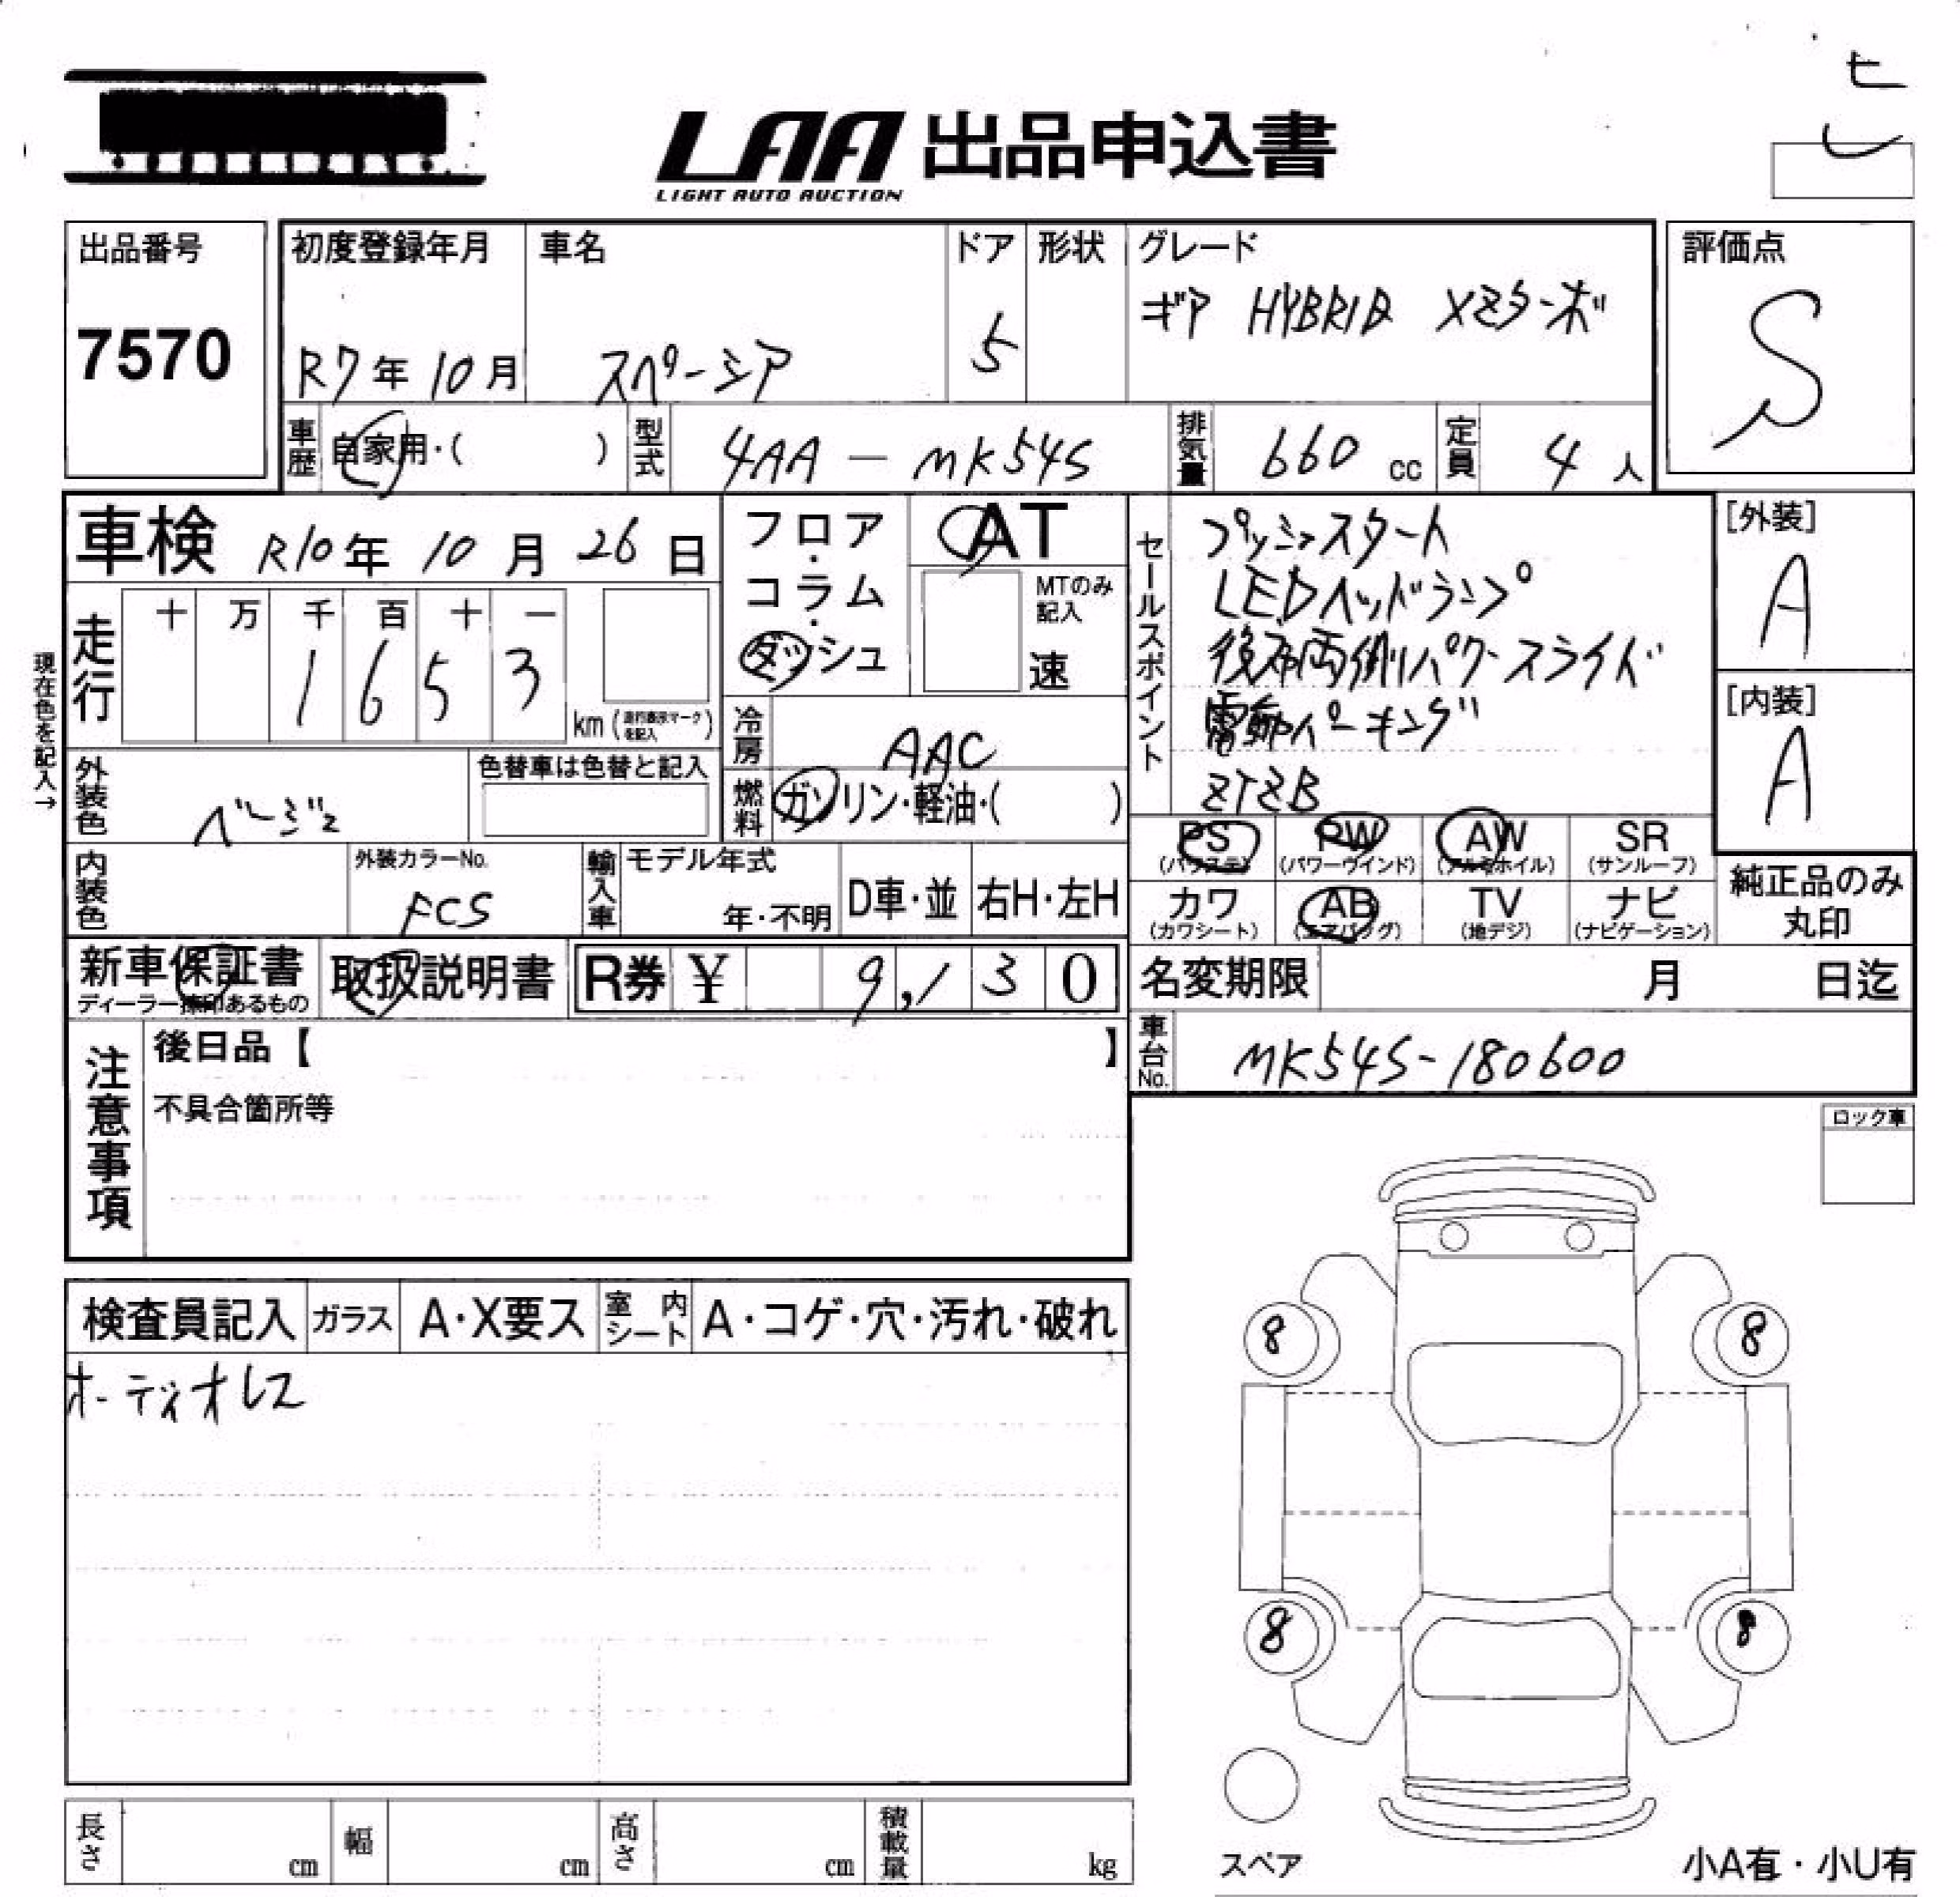 ヒ
し
LAA 出品申込書
LIGHT AUTO AUCTION
出品番号
7570
初度登録年月
R7年10月
車名
スペーシア
ドア
5
形状
グレード
ギア HYBRID XZターボ
評価点
S
車歴
自家用・( )
型式
4AA-MK54S
排気量
660 cc
定員
4人
車検
R10年10月26日
フロア・コラム・ダッシュ
AT
MTのみ記入
速
走行
十 万 千 百 十 一
1 6 5 3
km(走行表示マークを記入)
現在色を記入→
冷房
AAC
燃料
ガソリン・軽油・( )
セールスポイント
プッシュスタート
LEDヘッドランプ
後席両側パワースライド
電動パーキング
ZTZB
[外装]
A
[内装]
A
外装色
ベージュ
色替車は色替と記入
内装色
外装カラーNo.
FCS
輸入車
モデル年式
年・不明
D車・並
右H・左H
PS
(パワステ)
PW
(パワーウインド)
AW
(アルミホイル)
SR
(サンルーフ)
カワ
(カワシート)
AB
(エアバッグ)
TV
(地デジ)
ナビ
(ナビゲーション)
純正品のみ
丸印
新車保証書
ディーラー捺印あるもの
取扱説明書
R券 ¥ 9,130
名変期限 月 日迄
車台No.
MK54S-180600
注意事項
後日品【 】
不具合箇所等
ロック車
検査員記入
ガラス
A・X要ス
室内シート
A・コゲ・穴・汚れ・破れ
オーディオレス
8 8
8 8
スペア
小A有・小U有
長さ cm
幅 cm
高さ cm
積載量 kg